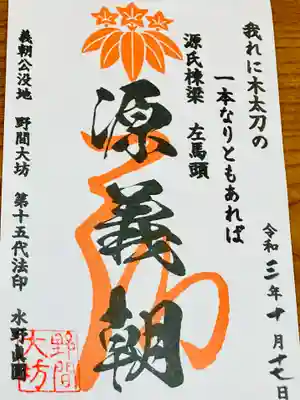 我れに木太刀の
一本なりともあれば
源氏棟梁 左馬頭
源義朝
令和三年十月十七日
義朝公没地 野間大坊 第十五代法印 水野真圓
野間
大坊